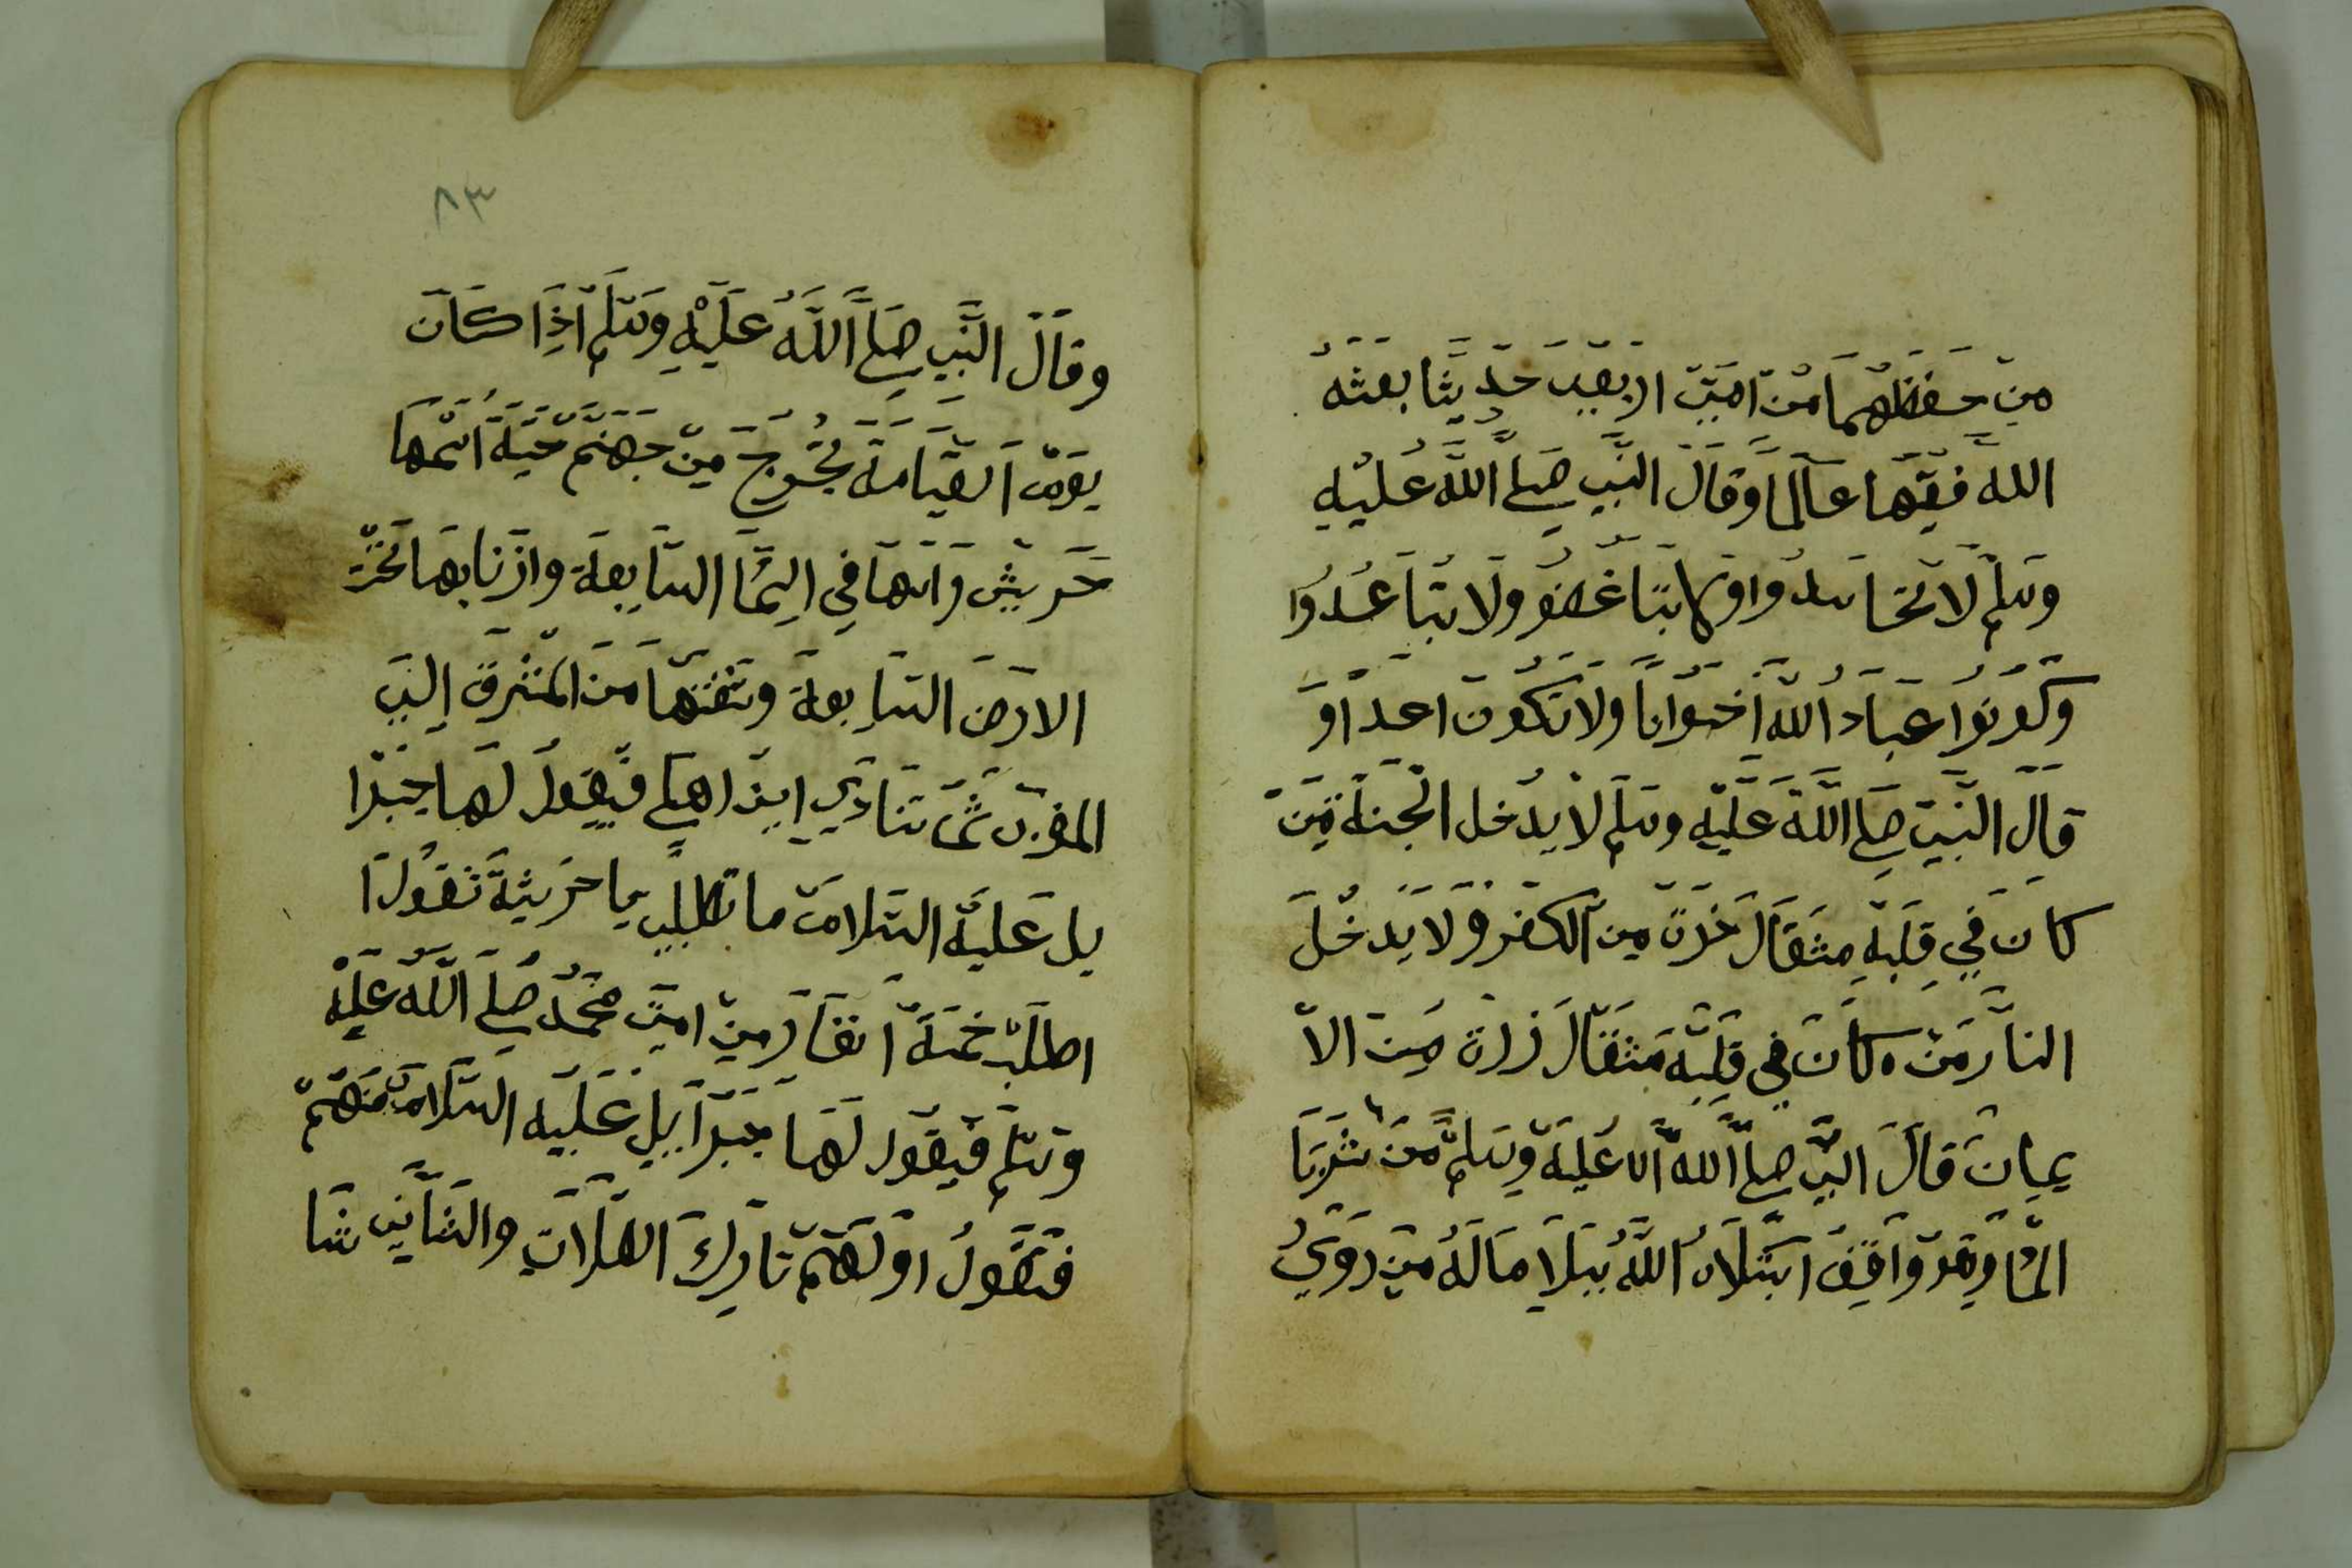 من حفظهما من امتى اربعين حديثا بعثه
الله فقيها عالما وقال النبى صلى الله عليه
وسلم لا تحاسدوا ولا تباغضو ولا تباعدوا
وكونوا عباد الله اخوانا ولا تكون اعداو
قال النبى صلى الله عليه وسلم لا يدخل الجنة من
كان في قلبه مثقال خردة من الكفر ولا يدخل
النار من كان في قلبه مثقال ذراة من الا
يمان قال النبى صلى الله عليه وسلم من شربا
الما وهو واقف ابتلاه الله ببلا ماله من دوى
٨٣
وقال النبى صلى الله عليه وسلم اذا كان
يوم القيامة يخروج من جهنم حية اسمها
حريش راسها في السما السابعة واذنابها تخت
الارض السابعة وشفتها من المشرق الى
المغرب ثما تنادي اين اهلي فيقول لها جبرا
يل عليه السلام ما تطلبي يا حريشة تقول
اطلب خمسة انفار من امتى محمد صلى الله عليه
وسلم فيقول لها جبراييل عليه السلام منهم
فتقول اولهم تارك الصلات والثاني شا